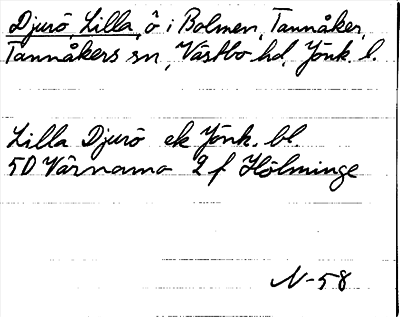 Djurö, Lilla, ö i Bolmen, Tannåker,
Tannåkers sn, Västbo hd, Jönk. l.
Lilla Djurö ek Jönk. bl.
5D Värnamo 2 f Hölminge
N-58